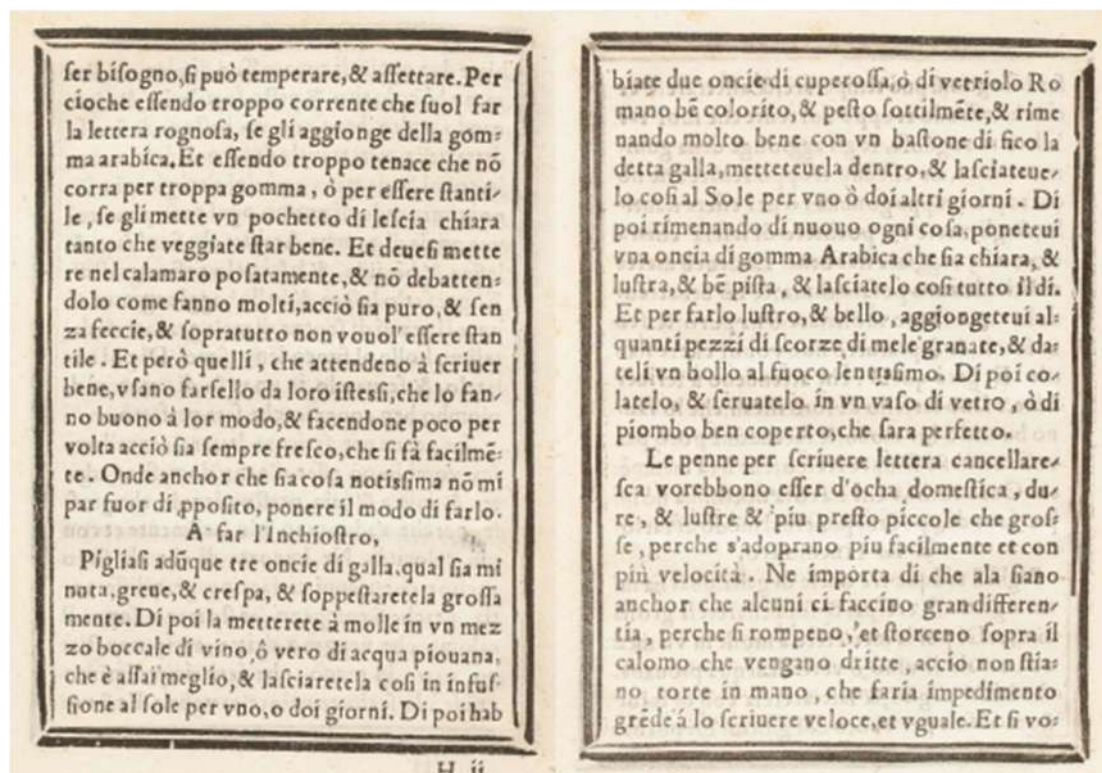 ſer biſogno,ſi può temperare,& aſſettare.Per
cioche eſſendo troppo corrente che ſuol far
la lettera rognoſa, ſe gli aggionge della gom⸗
ma arabica.Et eſſendo troppo tenace che nõ
corra per troppa gomma, ò per eſſere ſtanti⸗
le, ſe gli mette vn pochetto di leſcia chiara
tanto che veggiate ſtar bene. Et deueſi mette
re nel calamaro poſatamente,& nõ debatten⸗
dolo come fanno molti,acciò ſia puro,& ſen
za feccie,& ſopratutto non vouol'eſſere ſtan
tile. Et però quelli, che attendeno à ſcriuer
bene,vſano farſello da loro iſteſsi,che lo fan⸗
no buono à lor modo,& facendone poco per
volta acciò ſia ſempre freſco,che ſi fà facilmẽ⸗
te. Onde anchor che ſia coſa notiſsima nõ mi
par fuor di ꝓpoſito, ponere il modo di farlo.
A far l'Inchioſtro,
Pigliaſi adũque tre oncie di galla,qual ſia mi
nuta,greue,& creſpa, & ſoppeſtaretela groſſa
mente. Di poi la metterete à molle in vn mez
zo boccale di vino,ô vero di acqua piouana,
che è aſſai meglio,& laſciaretela coſi in infuſ⸗
ſione al ſole per vno,o doi giorni. Di poi hab
H ii
biate due oncie di cuperoſſa,ò di vetriolo Ro
mano bẽ colorito,& peſto ſottilmẽte,& rime
nando molto bene con vn baſtone di fico la
detta galla,metteteuela dentro,& laſciateue⸗
lo coſi al Sole per vno ò doi altri giorni. Di
poi rimenando di nuouo ogni coſa,poneteui
vna oncia di gomma Arabica che ſia chiara, &
luſtra,& bẽ piſta, & laſciatelo coſi tutto il di.
Et per farlo luſtro,& bello, aggiongeteui al⸗
quanti pezzi di ſcorze di mele granate,& da⸗
teli vn bollo al fuoco lentiſsimo. Di poi co⸗
latelo, & ſeruatelo in vn vaſo di vetro, ò di
piombo ben coperto,che ſara perfetto.
Le penne per ſcriuere lettera cancellare⸗
ſca vorebbono eſſer d'ocha domeſtica, du⸗
re, & luſtre & piu preſto piccole che groſ⸗
ſe, perche s'adoprano piu facilmente et con
più velocità. Ne importa di che ala ſiano
anchor che alcuni ci faccino gran differen⸗
tia, perche ſi rompeno, et ſtorceno ſopra il
calomo che vengano dritte, accio non ſtia⸗
no torte in mano, che ſaria impedimento
grẽde á lo ſcriuere veloce,et vguale. Et ſi vo⸗